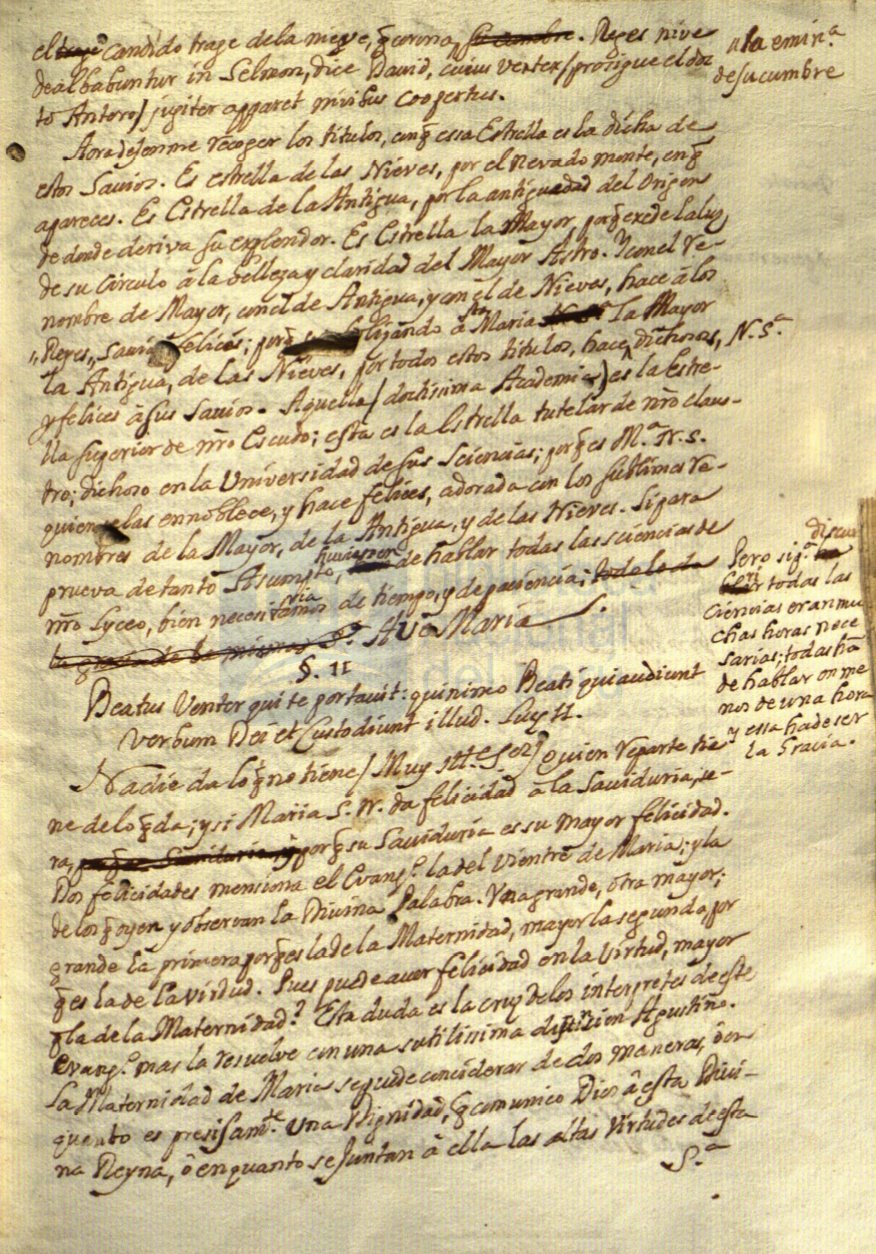 el traje candido trage de la nieve, q̃ corona, su cumbre. Reges nive
dealbabuntur in Selmon, dice David, cuius vertex / prosigue el doc
to Antoro / jugiter apparet nivibus coopertus.
Aora dejenme recoger los titulos, conq̃ essa Estrella es la dicha de
estos Savios. Es estrella de las Nieves, por el nevado monte, en q̃
apareces. Es Estrella de la Antigua, por la antiguedad del Origen
de donde deriva su explendor. Es Estrella la Mayor, porq̃ exede la luz
de su circulo â la belleza y claridad del Mayor Astro. Y con el re-
nombre de Mayor, con el de Antigua, y con el de Nieves, hace â los
Reyes, Savios felices; porq̃ â Sta Maria la Mayor
la Antigua, de las Nieves, por todos estos titulos, hace dichosos,
y felices â sus Savios. Aquella / doctissima Academia / es la Estre-
lla superior de nr̃o Escudo; esta es la Estrella tutelar de nr̃o claus-
tro; dichoso en la Universidad de sus Sciencias; porq̃ es M.ª N. S.
quien las ennoblece, y hace felices, adorada con los sublimes re-
nombres de la Mayor, de la Antigua, y de las Nieves. Si para
prueva de tanto Assumpto, huviesen de hablar todas las sciencias de
nr̃o Lyceo, bien necesitariamos de tiempo, y de paciencia; todo lo da
la gracia de la misma S.ª Ave Maria
§. II
Beatus Venter qui te portavit: quinimo Beati qui audiunt
Verbum Dei et Custodiunt illud. Luc 11.
Nadie da lo q̃ no tiene / Muy Ill.e Señor / quien reparte tie
ne de lo q̃ da; y si Maria S. N. da felicidad a la Saviduria, se-
ra, porq̃ su Saviduria es su mayor felicidad.
Dos felicidades menciona el Evang.º la del vientre de Maria; y la
de los q̃ oyen y observan la Divina Palabra. Vna grande, otra mayor;
grande la primera porq̃ es la de la Maternidad, mayor la segunda, por
q̃ es la de la virtud. Pues puede aver felicidad en la virtud, mayor
q̃ la de la Maternidad? Esta duda es la cruz de los interpretes de este
evang.º mas la resuelve con una sutilissima distincion Agustino.
La Maternidad de Maria se puede conciderar de dos maneras, ô en
quanto es presisam.te una Dignidad, q̃ comunicó Dios â esta Divi-
na Reyna, ô en quanto se juntan â ella las altas virtudes de esta
S.ª
a la emin.ª
de su cumbre
N. S.ª
Pero si p.ª discu
rrir todas las
ciencias eran mu
chas horas nece
sarias; todas hã
de hablar en me
nos de una hora
y essa ha de ser
la Gracia.